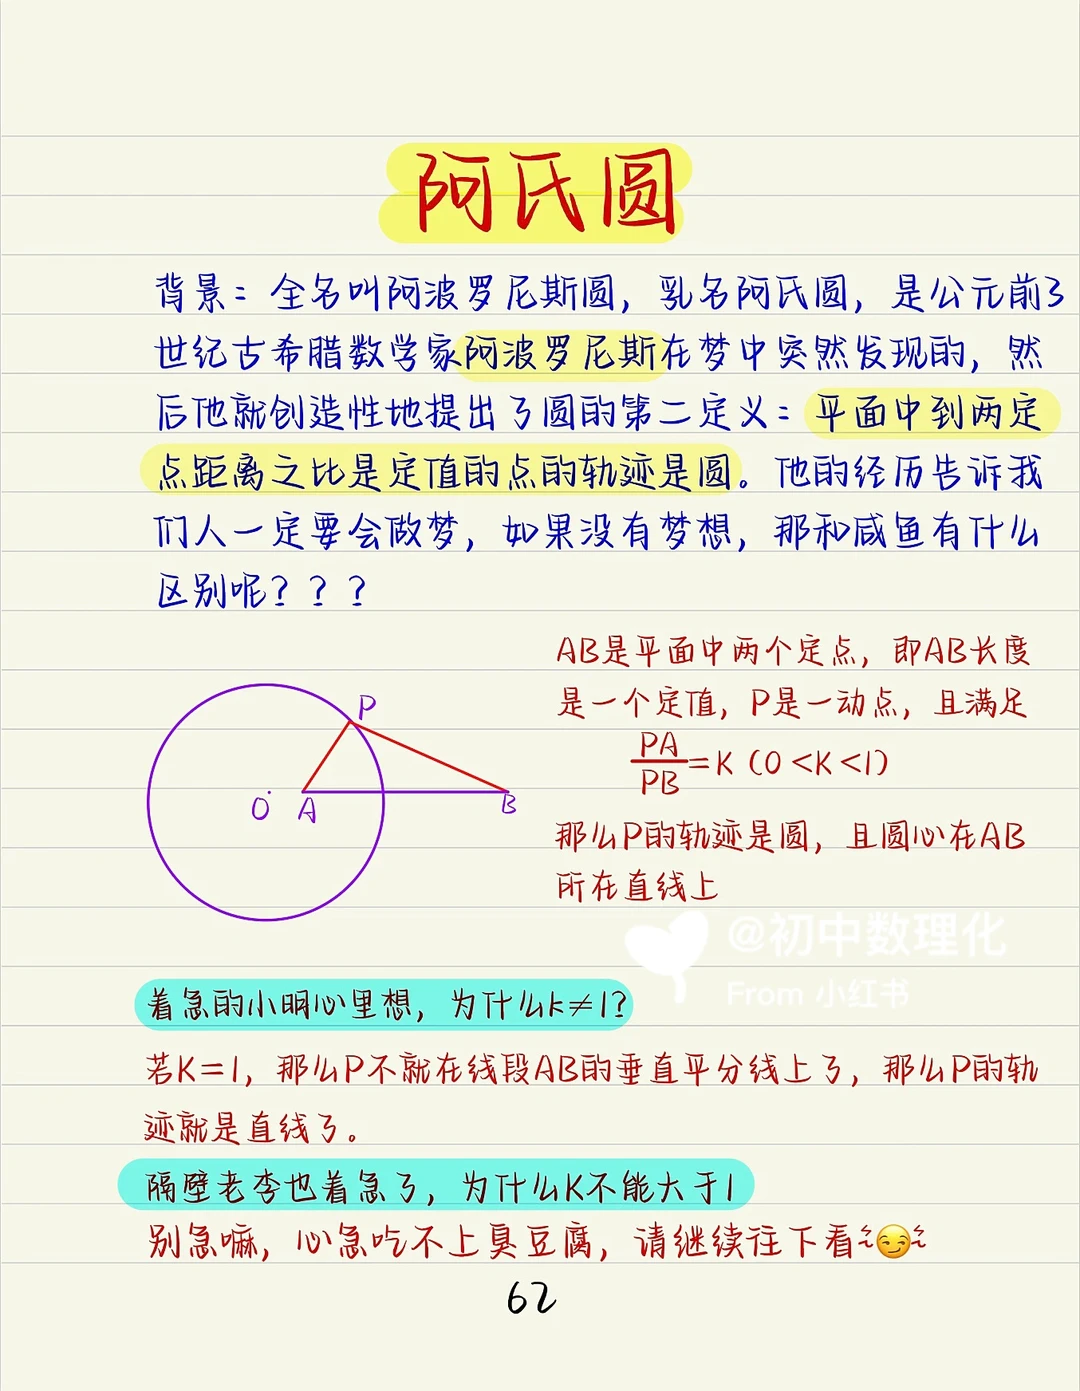 阿氏圆
背景：全名叫阿波罗尼斯圆，乳名阿氏圆，是公元前3
世纪古希腊数学家阿波罗尼斯在梦中突然发现的，然
后他就创造性地提出了圆的第二定义：平面中到两定
点距离之比是定值的点的轨迹是圆。他的经历告诉我
们人一定要会做梦，如果没有梦想，那和咸鱼有什么
区别呢？？？
AB是平面中两个定点，即AB长度
是一个定值，P是一动点，且满足
PA/PB=K（0<K<1）
那么P的轨迹是圆，且圆心在AB
所在直线上
P
O A B
@初中数理化
From 小红书
着急的小明心里想，为什么k≠1？
若K=1，那么P不就在线段AB的垂直平分线上了，那么P的轨
迹就是直线了。
隔壁老李也着急了，为什么K不能大于1
别急嘛，心急吃不上臭豆腐，请继续往下看~😏~
62